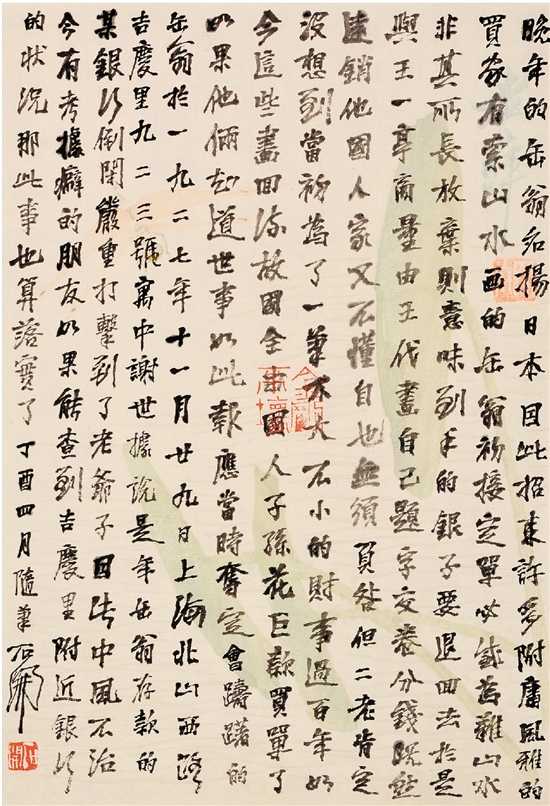 晚年的缶翁名揚日本因此招來許多附庸風雅的
買家有索山水画的缶翁初接定單必感為難山水
非其所長放棄則意味到手的銀子要退回去於是
與王一亭商量由王代畫自己題字交卷分錢既然
遠銷他國人家又不懂自也無須負咎但二老肯定
沒想到當初為了一筆不大不小的財事過百年如
今這些畫回流故國全由國人子孫花巨款買單了
如果他倆知道世事如此報應當時奮定會躊躇的
缶翁於一九二七年十一月廿九日上海北山西路
吉慶里九二三號寓中謝世據說是年缶翁存款的
某銀行倒閉嚴重打擊到了老爺子因此中風不治
今有考據癖的朋友如果能查到吉慶里附近銀行
的狀況那此事也算落實了丁酉四月隨筆石開